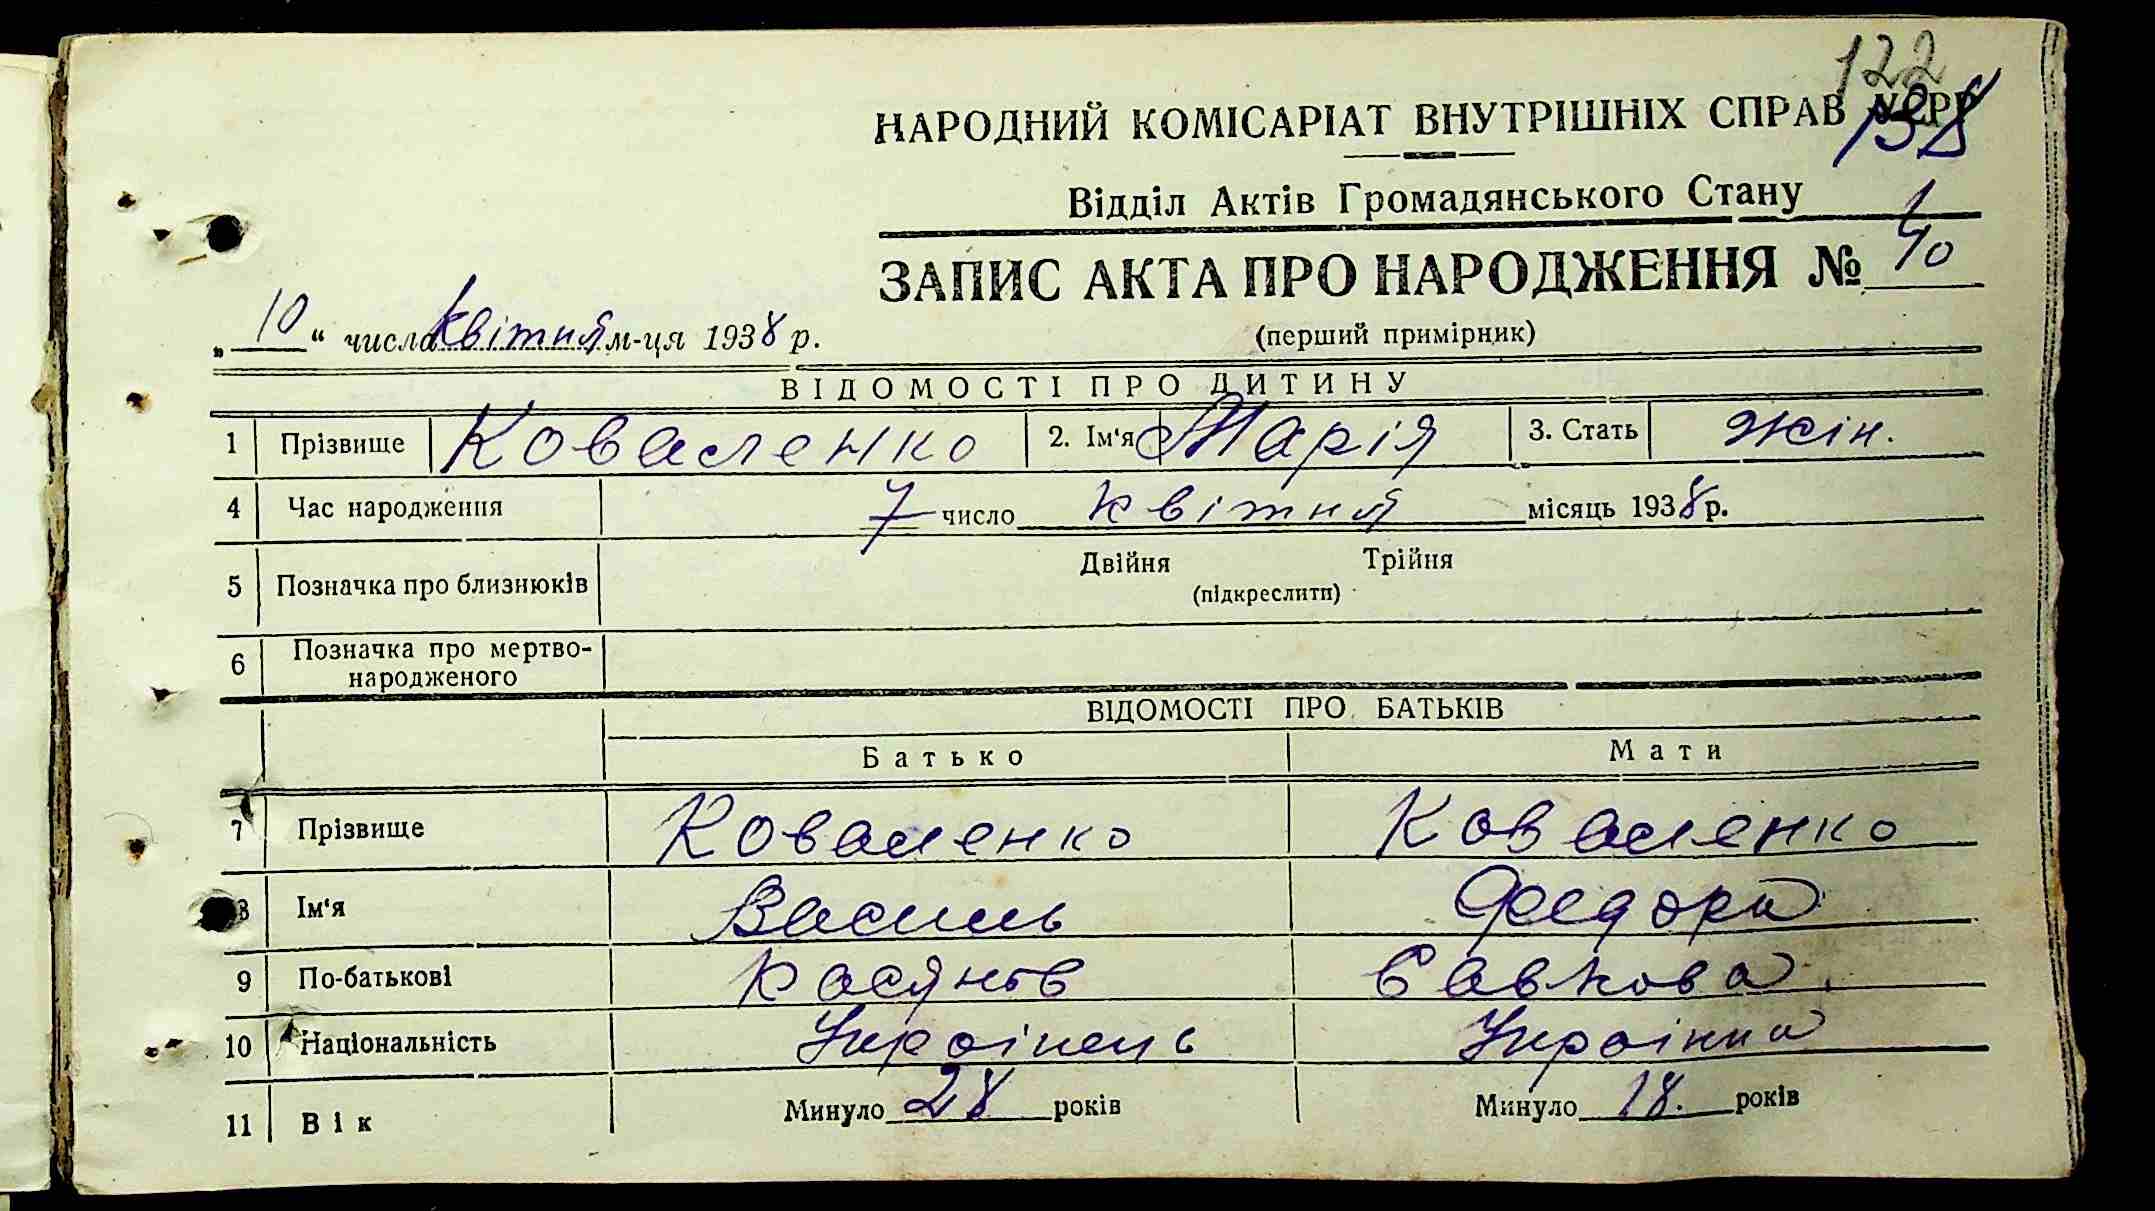 122
138
НАРОДНИЙ КОМІСАРІАТ ВНУТРІШНІХ СПРАВ УСРР
Відділ Актів Громадянського Стану
ЗАПИС АКТА ПРО НАРОДЖЕННЯ № 40
„ 10 “ числа квітня м-ця 1938 р.
(перший примірник)
ВІДОМОСТІ ПРО ДИТИНУ
1 Прізвище Коваленко 2. Ім'я Марія 3. Стать жін.
4 Час народження 7 число квітня місяць 1938 р.
5 Позначка про близнюків Двійня Трійня
(підкреслити)
6 Позначка про мертво-
народженого
ВІДОМОСТІ ПРО БАТЬКІВ
Батько Мати
7 Прізвище Коваленко Коваленко
8 Ім'я Василь Федора
9 По-батькові Касянов Савкова
10 Національність Українець Українка
11 Вік Минуло 28 років Минуло 18. років